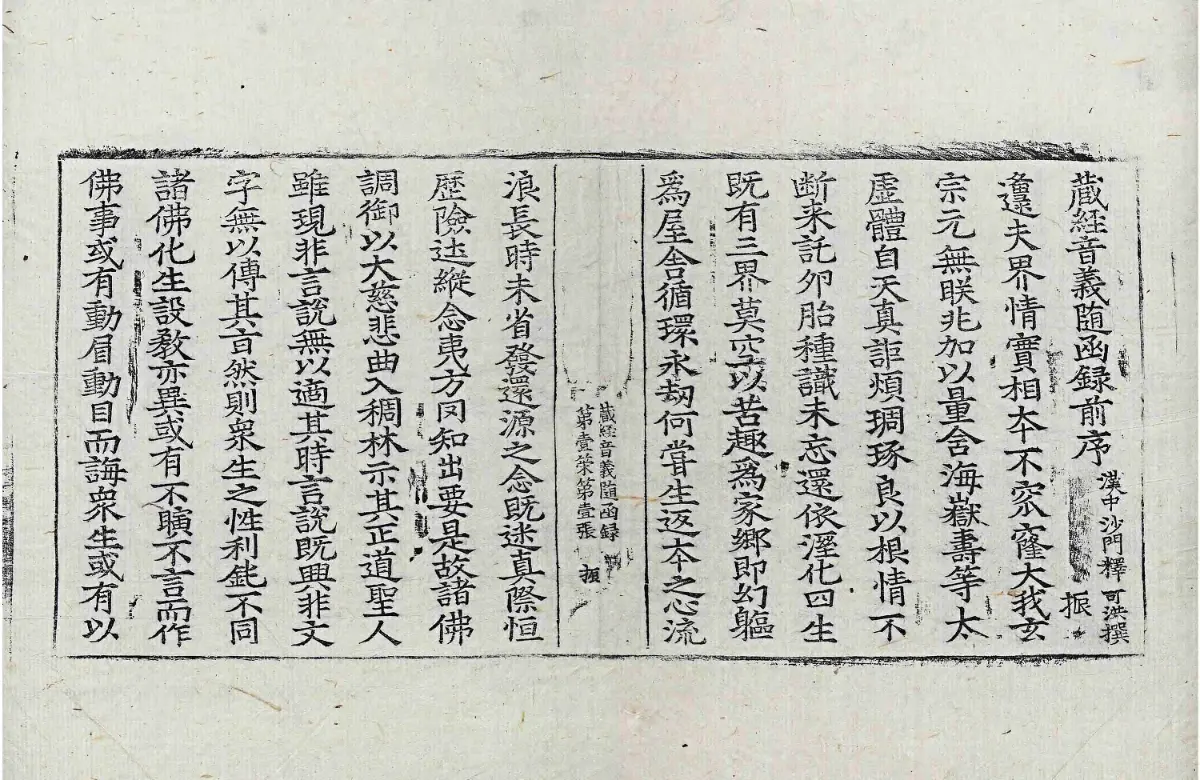 蔵経音義随函録前序 漢中沙門釋可洪撰 振
夫界情實相夲不家大我玄
宗元無朕兆加以量舍海嶽壽等太
虚體自天真詎煩琱琢良以根情不
断来託夘胎種識未忘還依溼化四生
既有三界莫空以苦趣爲家郷即幻軀
爲屋舎循環永刼何甞生返夲之心流
蔵経音義随函録
第壹筞第壹張 振
浪長時未省發還源之念既迷真際恒
歴險逹縱念夷方罔知出要是故諸佛
調御以大慈悲曲入稠林示其正道聖人
雖現非言説無以適其時言説既興非文
字無以傳其言然則衆生之性利鈍不同
諸佛化生設教亦異或有不瞚不言而作
佛事或有動眉動目而誨衆生或有以